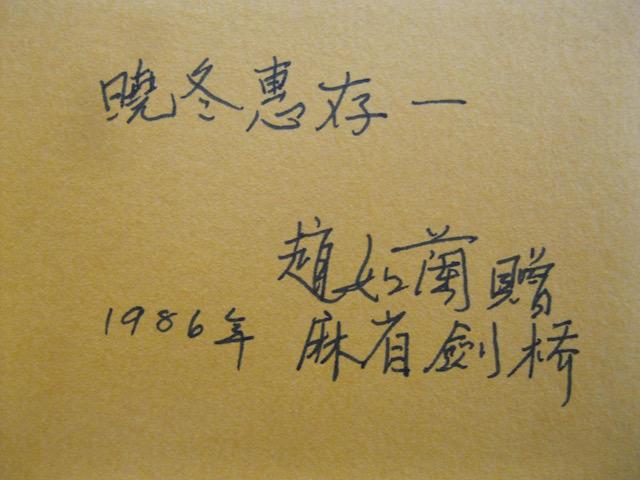 曉冬惠存一
趙如蘭贈
1986年 麻省劍橋